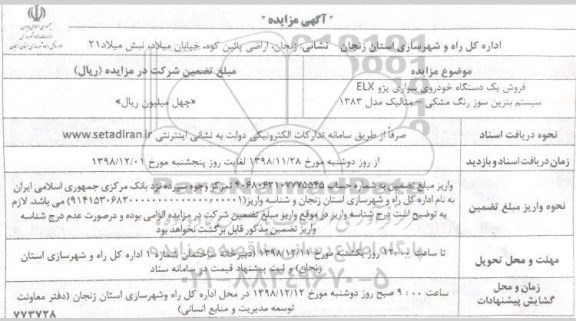 " آگهی مزایده "
اداره کل راه و شهرسازی استان زنجان نشانی: زنجان، اراضی پائین کوه، خیابان میلاد، نبش میلاد۲۱
موضوع مزایده
مبلغ تضمین شرکت در مزایده (ریال)
فروش یک دستگاه خودروی سواری پژو ELX
سیستم بنزین سوز رنگ مشکی – متالیک مدل ۱۳۸۳
«چهل میلیون ریال»
نحوه دریافت اسناد
صرفاً از طریق سامانه تدارکات الکترونیکی دولت به نشانی اینترنتی www.setadiran.ir
زمان دریافت اسناد و بازدید
از روز دوشنبه مورخ ۱۳۹۸/۱۱/۲۸ لغایت روز پنجشنبه مورخ ۱۳۹۸/۱۲/۰۱
نحوه واریز مبلغ تضمین
واریز مبلغ تضمین به شماره حساب تمرکز وجوه سپرده نزد بانک مرکزی جمهوری اسلامی ایران
به نام اداره کل راه و شهرسازی استان زنجان و شناسه واریز می باشد. لازم
به توضیح است درج شناسه واریز در موقع واریز مبلغ تضمین شرکت در مزایده الزامی بوده و درصورت عدم درج شناسه
واریز تضمین مذکور قابل برگشت نخواهد بود
مهلت و محل تحویل
تا ساعت ۱۴:۰۰ روز یکشنبه مورخ ۱۳۹۸/۱۲/۱۱ (دبیرخانه ساختمان شماره ۱ اداره کل راه و شهرسازی استان
زنجان) و ثبت پیشنهاد قیمت در سامانه ستاد
زمان و محل
گشایش پیشنهادات
ساعت ۰۰ : ۹ صبح روز دوشنبه مورخ ۱۳۹۸/۱۲/۱۲ در محل اداره کل راه وشهرسازی استان زنجان (دفتر معاونت
توسعه مدیریت و منابع انسانی)
۷۷۳۷۲۸
پایگاه اطلاع رسانی مناقصه و مزایده
۰۲۱-۸۸۳۴۹۶۷۰-۵